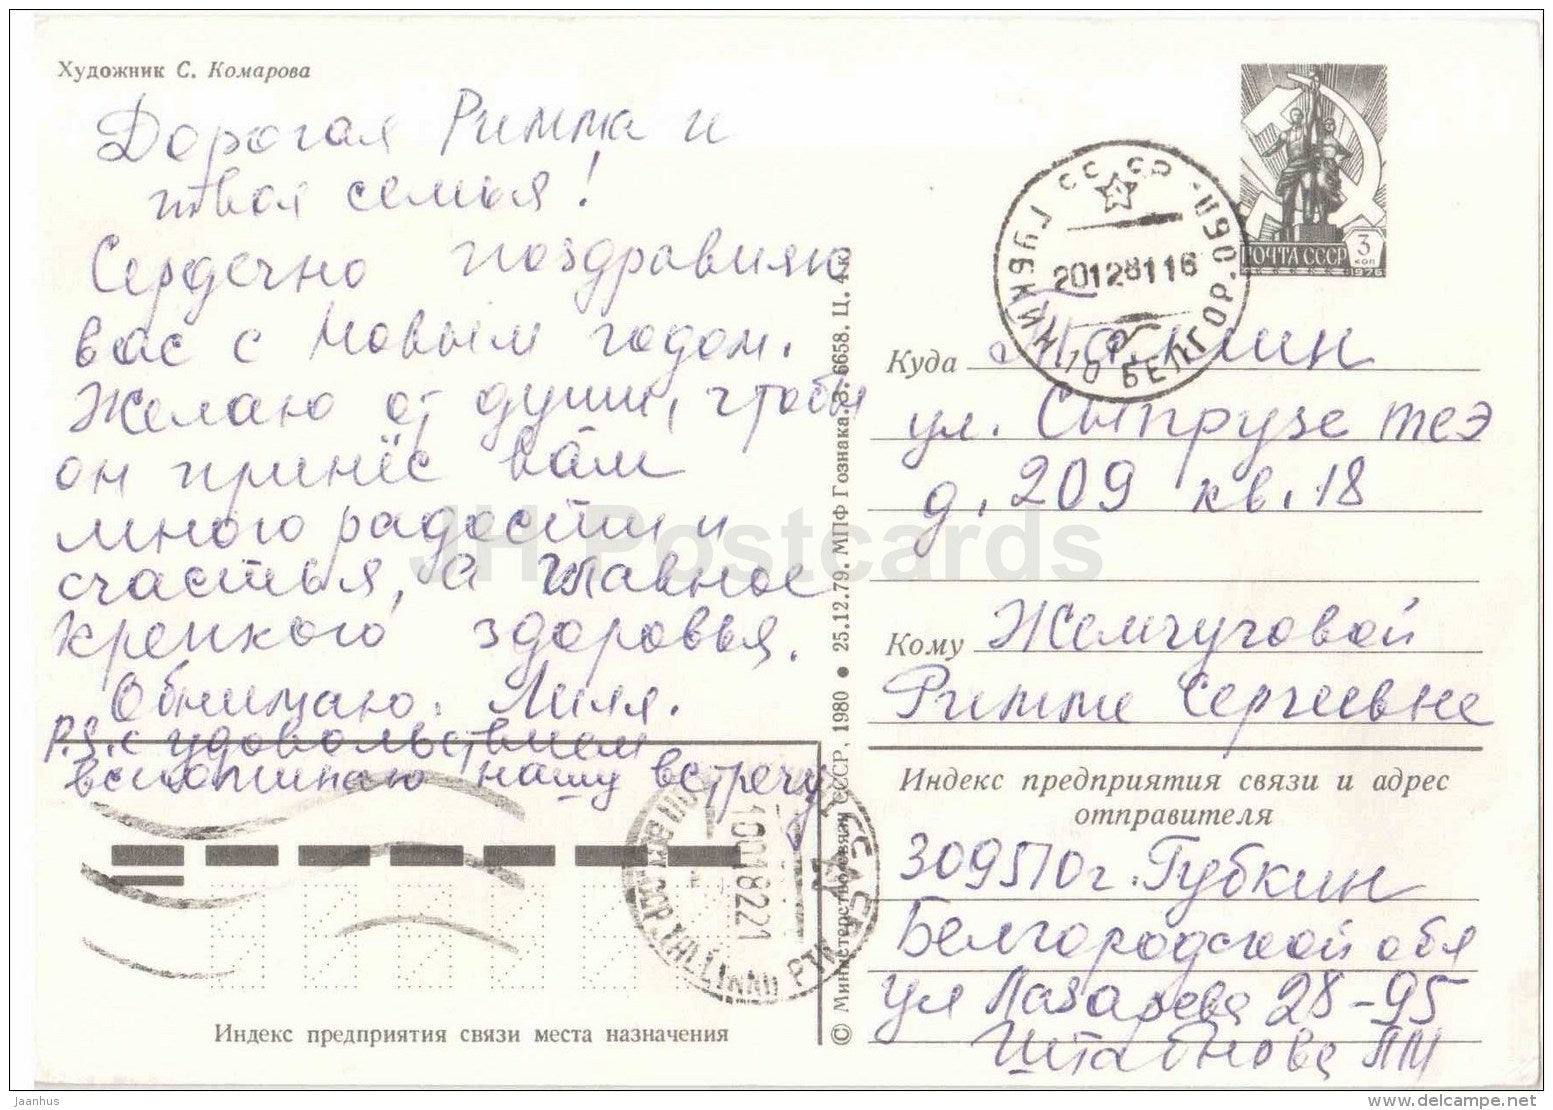 Художник С. Комарова
Дорогая Римма и
твоя семья!
Сердечно поздравляю
вас с Новым годом.
Желаю от души, чтобы
он принёс вам
много радости и
счастья, а главное
крепкого здоровья.
Обнимаю. Лиля.
P.S. с удовольствием
вспоминаю нашу встречу
Индекс предприятия связи места назначения
© Министерство связи СССР, 1980 ● 25.12.79. МПФ Гознака. З. 6658. Ц. 4 к.
ПОЧТА СССР 3 коп
1976
СССР
ГУБКИН 10 БЕЛГОР. ОБЛ.
20128116
Куда Таллин
ул. Сыпрузе теэ
д. 209 кв. 18
Кому Жемчуговой
Римме Сергеевне
Индекс предприятия связи и адрес
отправителя
309510 г. Губкин
Белгородской обл
ул Лазарева 28-95
Штабнова ЛМ
TALLINNA
10018221
JH Postcards
Jaanhus
www.delcampe.net